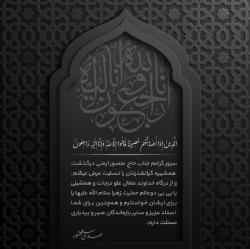 انا لله و انا الیه راجعون
الَّذِینَ إِذَا أَصَابَتْهُم مُّصِیبَةٌ قَالُوا إِنَّا لِلَّهِ وَإِنَّا إِلَیْهِ رَاجِعُونَ
سرور گرامی جناب حاج منصور ارضی درگذشت
همشیره گرانقدرتان را تسلیت عرض میکنم.
و از درگاه خداوند متعال علو درجات و همنشینی
با بی بی دوعالم حضرت زهرا سلام الله علیها را
برای ایشان خواستارم و همچنین برای شما
استاد عزیز و سایر بازماندگان صبر و بردباری
مسئلت دارم.